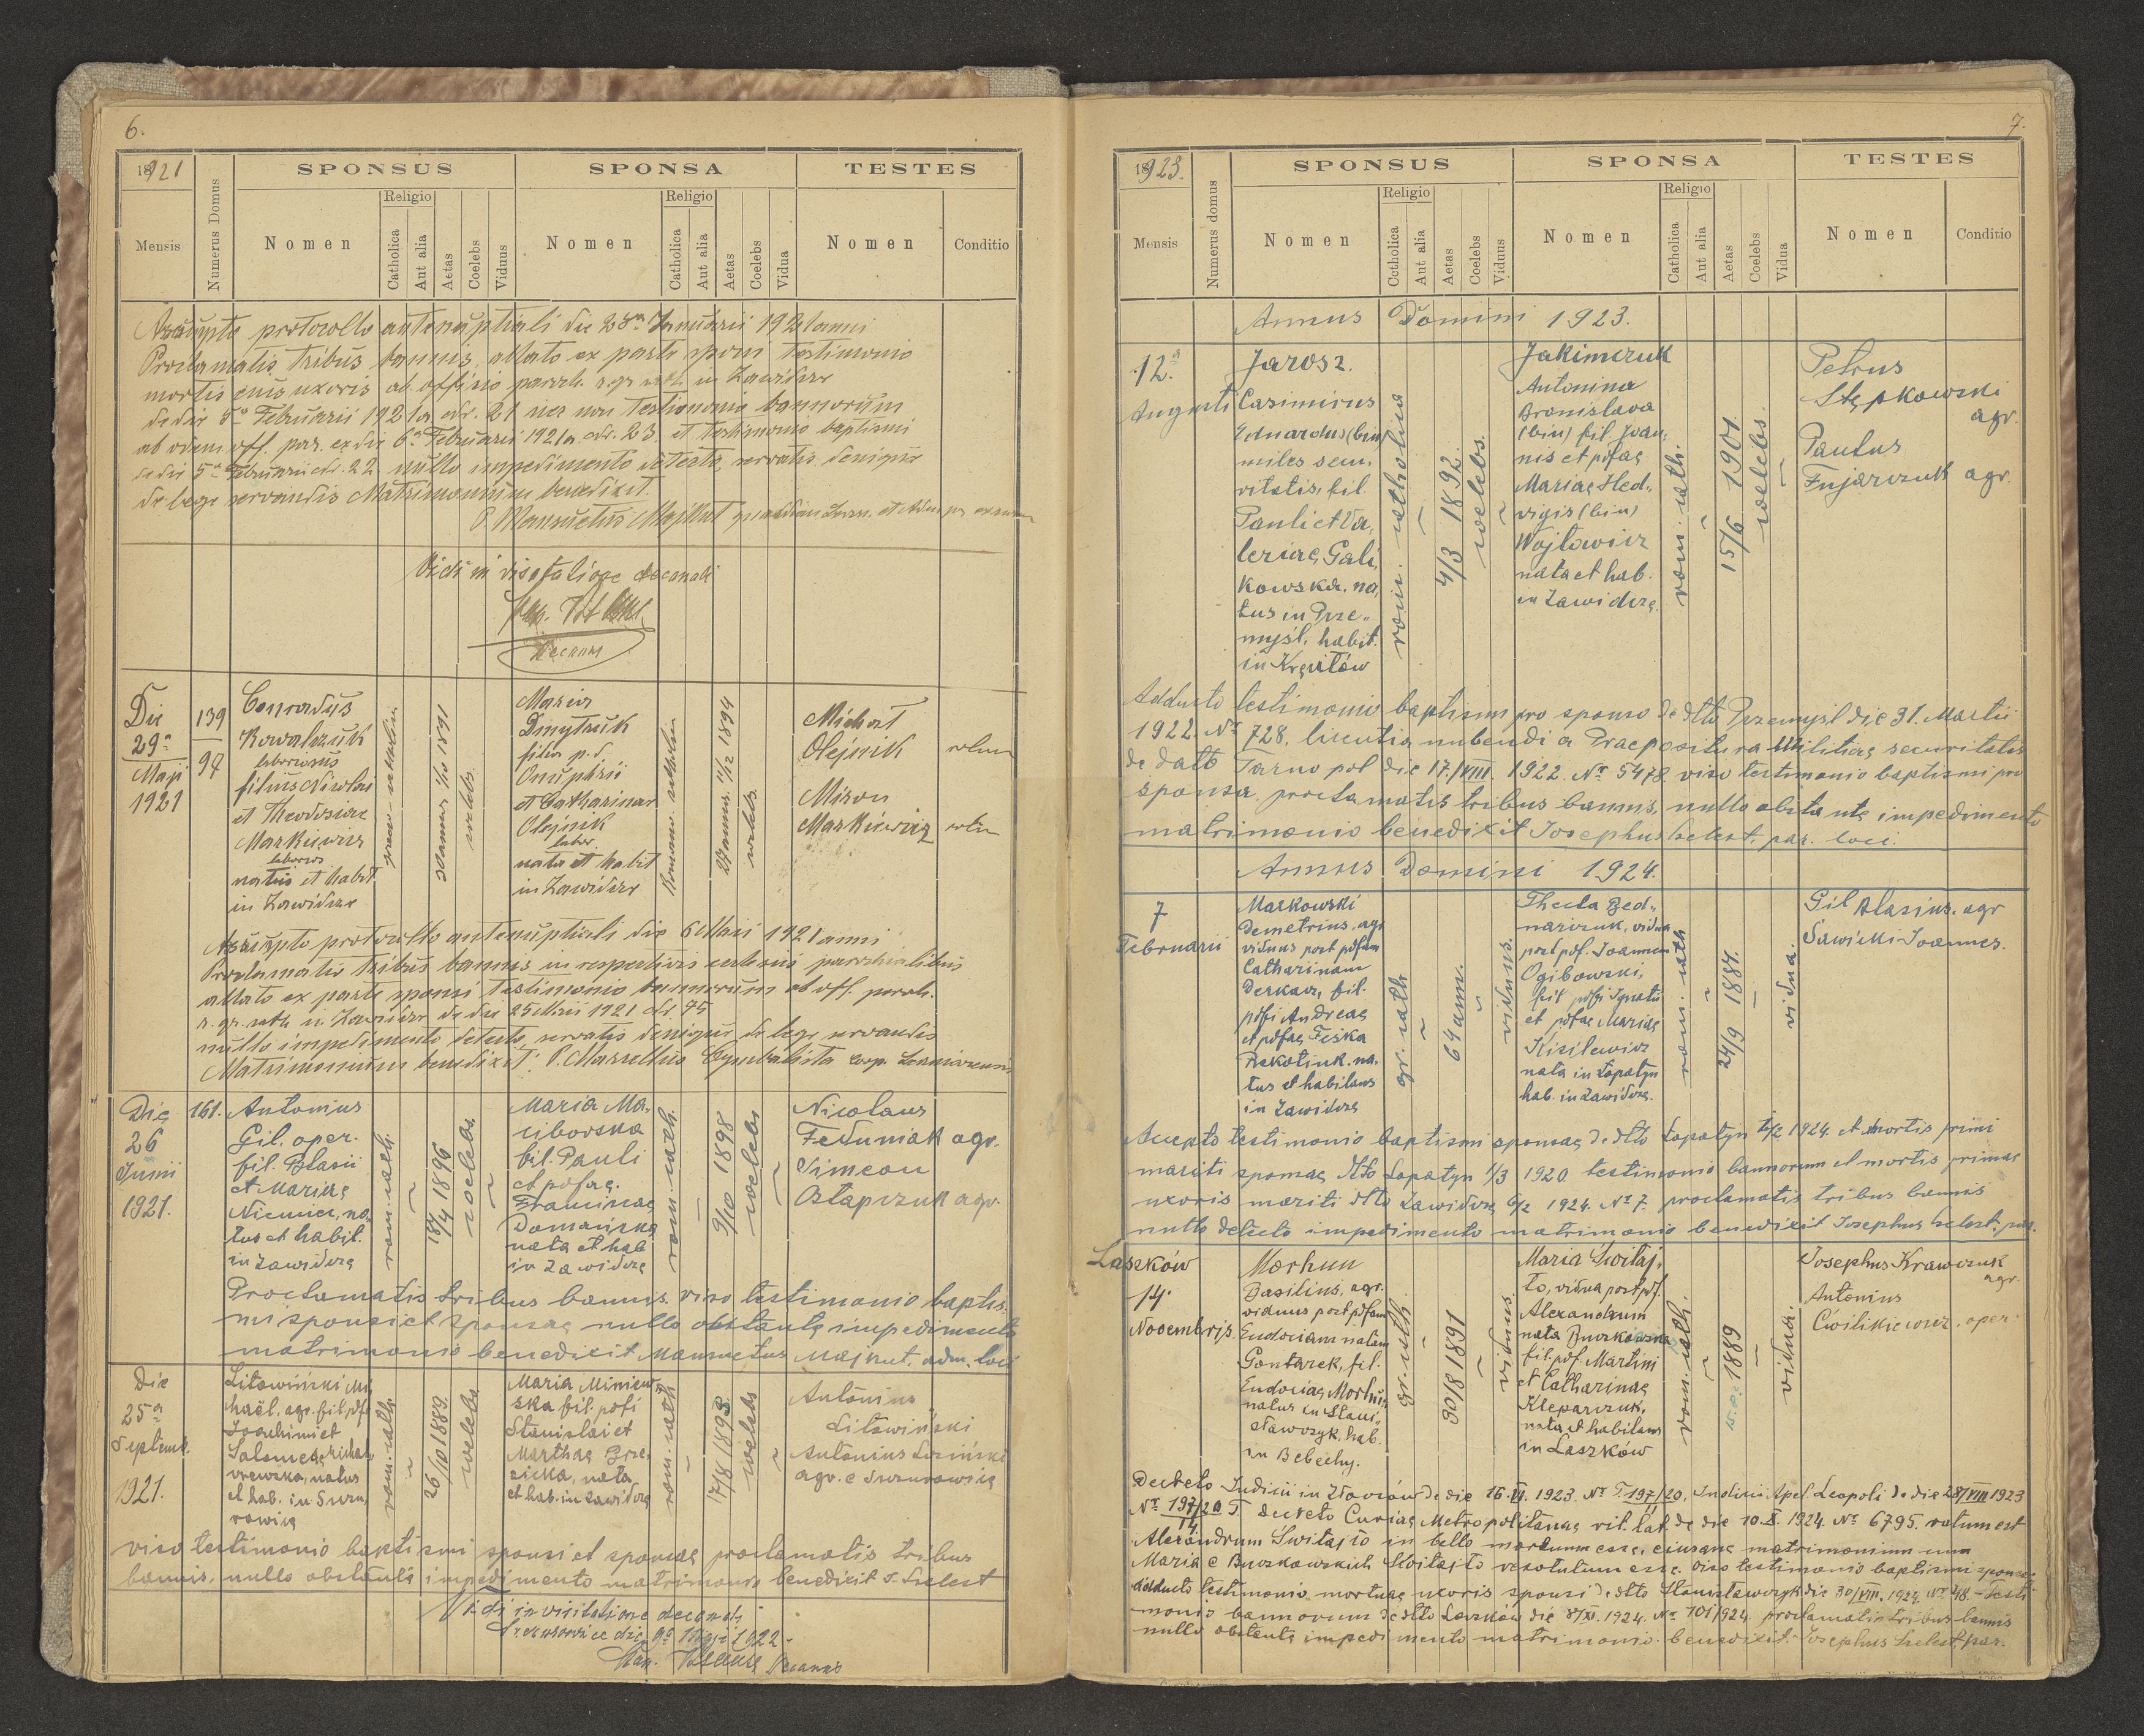 6.
1921
Mensis
Numerus Domus
SPONSUS
Nomen
Religio
Catholica
Aut alia
Aetas
Coelebs
Viduus
SPONSA
Nomen
Religio
Catholica
Aut alia
Aetas
Coelebs
Vidua
TESTES
Nomen
Conditio
protocollo antenuptiali die 28a Januarii 1921 anni
Proclamatis tribus bannis, allato ex parte sponsi testimonio
mortis ejus uxoris ab officio paroch. in Zawidcze
de die 5a Februarii 1921 21 nec non Testimonio bannorum
ab eodem off. par. ex die 6a Februarii 1921 23. et testimonio baptismi
de die 5a Februarii 22 nullo impedimento detecto, servatis denique
de lege servandis Matrimonium benedixit.
P. Mansuetus Majkut
Vidi in visitatione decanali
Decanus
Die
29a
Maji
1921
139
94
Conradus
Kowalczuk
laboriosus
filius Nicolai
et Theodosiae
Markiewicz
natus et habit.
in Zawidcze
1891
coelebs
Maria
Dmytruk
filia p.d.
Onuphrii
et Catharinae
Olejnik
nata et habit
in Zawidcze
1894
coelebs
Michał
Olejnik
Miron
Markiewicz
protocollo antenuptiali die 6 Maii 1921 anni
Proclamatis tribus bannis in respectivis ecclesiis parochialibus
allato ex parte sponsi testimonio bannorum ab off. paroch.
r. gr. cath. in Zawidcze de die 25 Maii 1921 75
nullo impedimento detecto, servatis denique de lege servandis
Matrimonium benedixit: P. Marcellus Cymbalista coop.
Die
26
Junii
1921.
161.
Antonius
Gil. oper.
fil. Blasii
et Mariae
Niemiec, na-
tus et habit.
in Zawidcze
rom. cath.
18/4 1896
coelebs
Maria Ma-
ciborska
fil. Pauli
et pdfae.
Franciscae
Domańska
nata et hab
in Zawidcze
rom. cath.
9/10 1898
coelebs
Nicolaus
Feduniak agr.
Simeon
Ostapczuk agr.
Proclamatis tribus bannis. viso testimonio baptis-
mi sponsi et sponsae nullo obstante impedimento
matrimonio benedixit Mansuetus Majkut, adm. loci
Die
25a
Septemb.
1921.
Litowiński Mi-
chaël, agr. fil. pdfi
Joachimi et
Salomeae
natus
et hab. in Szczu-
rowice
rom. cath
26/10 1889.
coelebs
Maria Miniew-
ska fil. pdfi
Stanislai et
Marthae Brze-
zicka, nata
et hab. in Zawidcze
rom. cath
17/8 1893
coelebs
Antonius
Litowiński
Antonius Łoziński
agr. e Szczurowice
viso testimonio baptismi sponsi et sponsae proclamatis tribus
bannis. nullo obstante impedimento matrimonio benedixit J. Szelest
Vidi in visitatione decanali
die 9a Maji 1922 -
Decanus
7.
1923.
Mensis
Numerus domus
SPONSUS
Nomen
Religio
Catholica
Aut alia
Aetas
Coelebs
Viduus
SPONSA
Nomen
Religio
Catholica
Aut alia
Aetas
Coelebs
Vidua
TESTES
Nomen
Conditio
Annus Domini 1923.
12a
Augusti
Jarosz.
Casimirus
Eduardus (bin)
miles secu-
ritatis, fil.
Pauli et Va-
leriae Gali-
kowska. na-
tus in Prze-
myśl. habit.
in
rom. catholica
4/3 1892.
coelebs.
Jakimczuk
Antonina
Bronislava
(bin) fil Joan-
nis et pdfae
Mariae Hed-
vigis (bin)
Wojtowicz
nata et hab.
in Zawidcze.
rom. cath.
15/6 1901
coelebs.
Petrus
Stępkowski
agr.
Paulus
Fujarczuk agr.
Adducto testimonio baptismi pro sponso de dtto Przemyśl die 31. Martii
1922. No 728. licentia nubendi a Praepositura Militiae securitatis
de datto Tarnopol die 17./VIII. 1922. No 5478 viso testimonio baptismi pro
sponsa. proclamatis tribus bannis, nullo obstante impedimento
matrimonio benedixit Josephus Szelest. par. loci.
Annus Domini 1924.
7
Februarii
Markowski
Demetrius, agr
viduus post pdfam
Catharinam
Derkacz, fil.
pdfi Andreae
et pdfae Feśka
Rekotiuk. na-
tus et habitans
in Zawidcze
gr. cath
64 ann.
viduus.
Thecla Bed-
narczuk, vidua
post pdf. Joannem
Ogibowski,
fil pdfi Ignatii
et pdfae Mariae
Kisilewicz
nata in Łopatyn
hab. in Zawidcze.
rom. cath
24/9 1884.
vidua.
Gil Blasius. agr
Sawicki Joannes.
Accepto testimonio baptismi sponsae de dtto Łopatyn 1924. et mortis primi
mariti sponsae dtto Łopatyn 1/3 1920. testimonio bannorum et mortis primae
uxoris mariti dtto Zawidcze 6/2 1924. No 7. proclamatis tribus bannis
nullo detecto impedimento matrimonio benedixit Josephus Szelest. par.
Laszków
14.
Novembris.
Morhun
Basilius, agr.
viduus post pdfam
Eudociam natam
Gontarek, fil.
Eudociae Morhun
natus in Stani-
sławczyk, hab.
in Bebechy.
gr. cath.
30/8 1891
viduus.
Maria Świtaj-
ło, vidua post pdf.
Alexandrum
nata Buczkowska
fil. pdf. Martini
et Catharinae
Kleparczuk,
nata et habitans
in Laszków
rom. cath.
1889
vidua.
Josephus Krawczuk
agr.
Antonius
Ćwilikiewicz. oper.
Decreto Judicii in Złoczów de die 16.VI. 1923. No T. 197/20. Judicii Apel. Leopoli de die 28/VIII 1923
No 197/20 T. decreto Curiae Metropolitanae rit. lat. de die 10.X. 1924. No 6795. ratum est
Alexandrum Świtajło in bello mortuum esse, eiusque matrimonium cum
Maria e Buczkowskich Świtajło resolutum esse. viso testimonio baptismi sponsae
Adducto testimonio mortuae uxoris sponsi de dtto Stanisławczyk die 30/VIII. 1924 No 248. - Testi-
monio bannorum de dtto Laszków die 8/XI. 1924. No 101/1924. proclamatis tribus bannis
nullo obstante impedimento matrimonio benedixit. Josephus Szelest par.